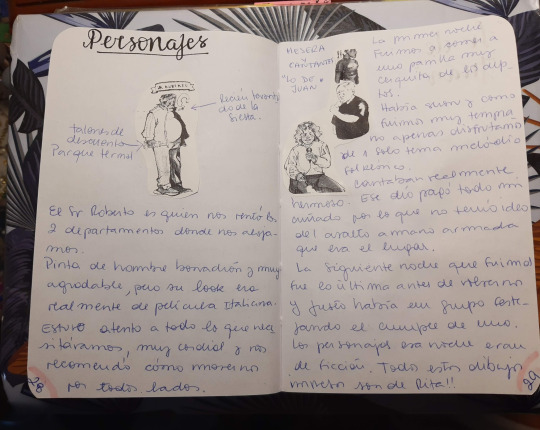 Personajes
Roberto
Recién levanta
do de la
siesta.
talones de
descuento
Parque termal
El Sr Roberto es quien nos rentó los
2 departamentos donde nos aloja
mos.
Pinta de hombre bonachón y muy
agradable, pero su look era
realmente de película Italiana.
Estuvo atento a todo lo que nece
sitáramos, muy cordial y nos
recomendó cómo movernos
por todos lados.
28
MESERA
CANTANTES
"LO DE
JUAN
La primer noche
fuimos a comer a
una parrilla muy
cerquita de los dep-
tos.
Había show y como
fuimos muy temprano
apenas disfrutamos
de 1 solo tema melódico
folklórico.
Cantaban realmente
hermoso. Ese día pagó todo mi
cuñado por lo que no tenía idea
del asalto a mano armada
que era el lugar.
La siguiente noche que fuimos
fue la última antes de volvernos
y justo había un grupo feste-
jando el cumple de uno.
Los personajes esa noche eran
de ficción. Todos estos dibujos
impresos son de Rita!!
29